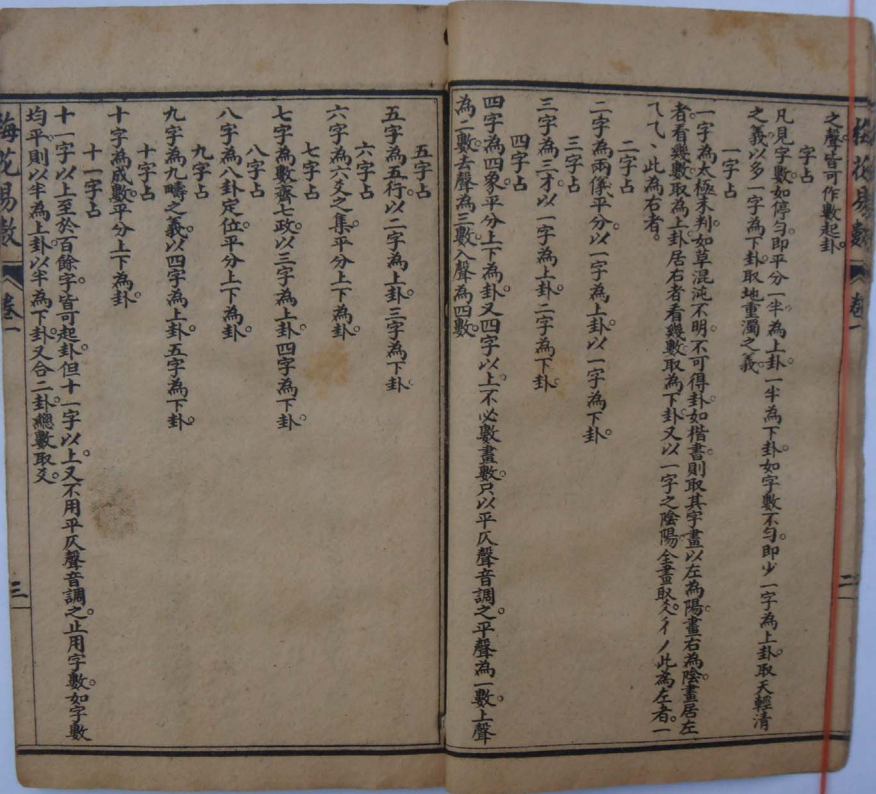 梅花易數
卷一
二
之聲皆可作數起卦。
字占
凡見字數如停勻。即平分一半為上卦。一半為下卦。如字數不勻。即少一字為上卦。取天輕清
之義。以多一字為下卦。取地重濁之義。
一字占
一字為太極未判。如草混沌不明。不可得卦。如楷書則取其字畫。以左為陽畫。右為陰畫。居左
者看幾數。取為上卦。居右者看幾數。取為下卦。又以一字之陰陽全畫取爻。彳丿此為左者。一
乁乀丶此為右者。
二字占
二字為兩儀平分。以一字為上卦。以一字為下卦。
三字占
三字為三才。以一字為上卦。二字為下卦。
四字占
四字為四象。平分上下為卦。又四字以上。不必數畫數。只以平仄聲音調之。平聲為一數。上聲
為二數。去聲為三數。入聲為四數。
五字占
五字為五行。以二字為上卦。三字為下卦。
六字占
六字為六爻之集。平分上下為卦。
七字占
七字為數齊七政。以三字為上卦。四字為下卦。
八字占
八字為八卦定位。平分上下為卦。
九字占
九字為九疇之義。以四字為上卦。五字為下卦。
十字占
十字為成數。平分上下為卦。
十一字占
十一字以上至於百餘字。皆可起卦。但十一字以上。又不用平仄聲音調之。止用字數。如字數
均平。則以半為上卦。以半為下卦。又合二卦總數取爻。
梅花易數
卷一
三